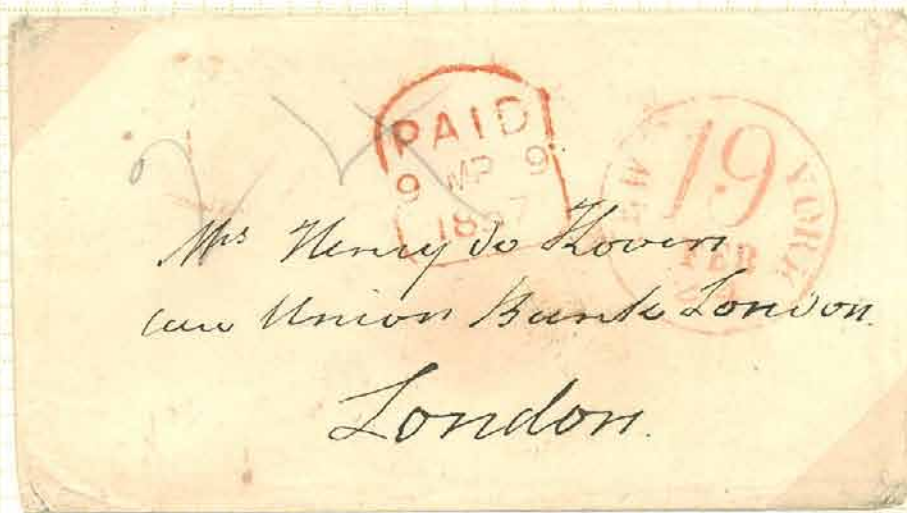 PAID
9 MR 9
1857
NEW YORK
19
FEB
Mrs Henry de Koven
care Union Bank London.
London.